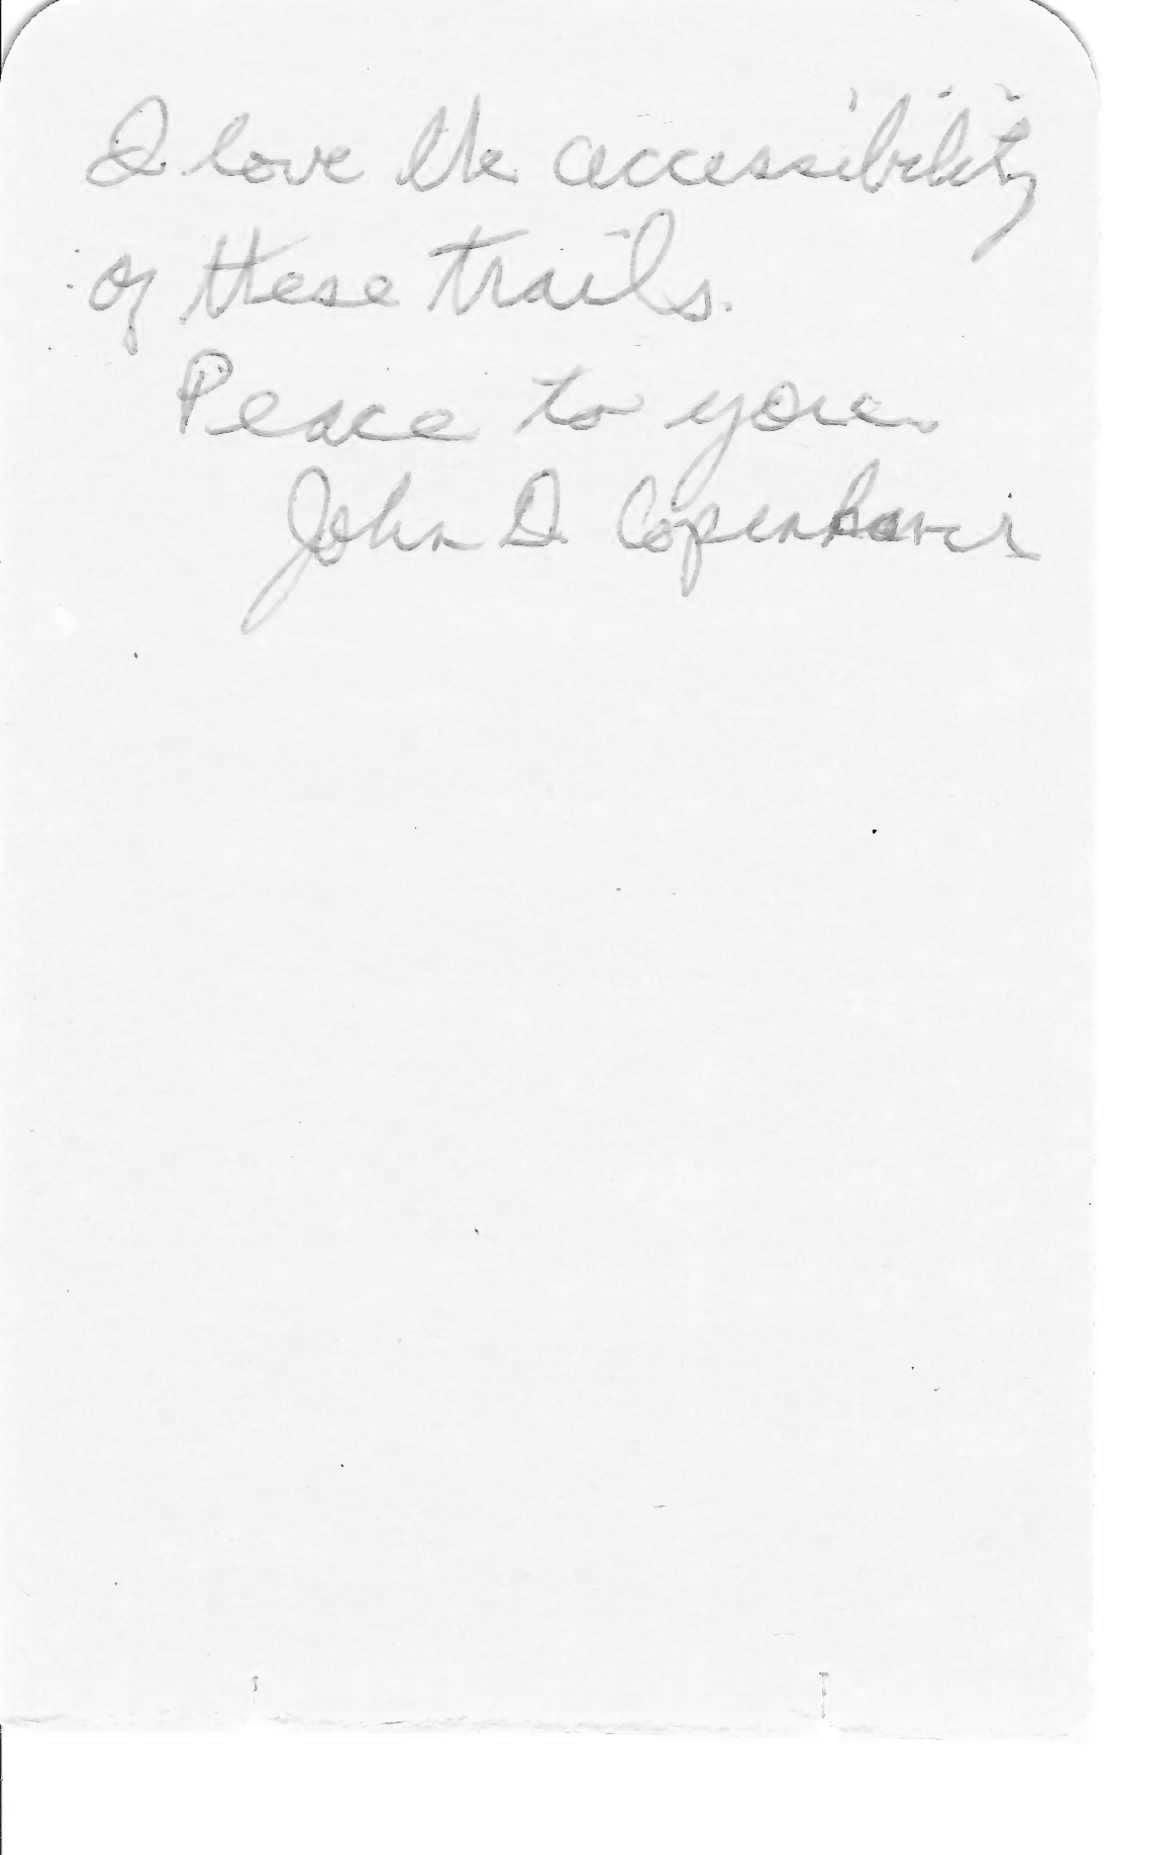 I love the accessibility
of these trails.
Peace to you.
John D. Copenhaver